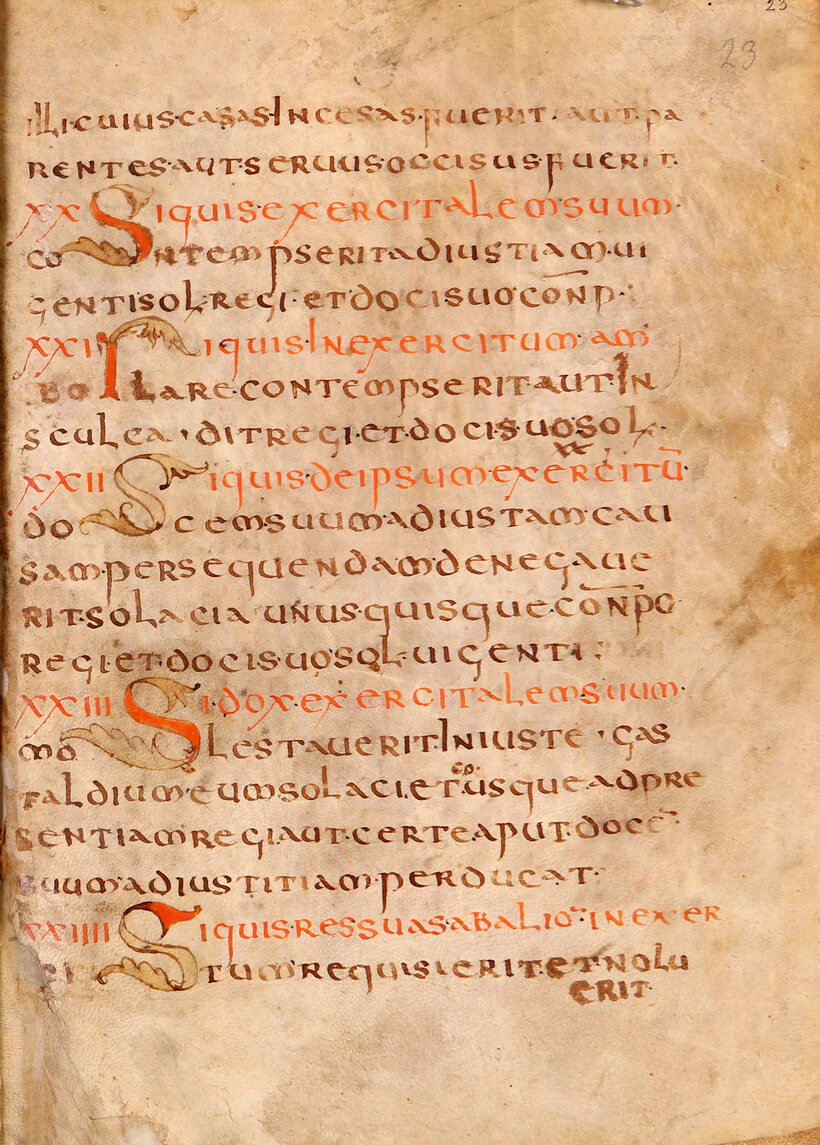 23
23
illi cuius casas incesas fuerit aut pa
rentes aut seruus occisus fuerit
XX Si quis exercitalem suum
contempserit ad iustiam ui
genti sol regi et doci suo conp
XXI Si quis in exercitum am
bolare contempserit aut in
sculca dit regi et doci suo sol
xx
XXII Si quis de ipsum exercitū
docem suum ad iustam cau
sam persequendam denegaue
rit solacia unusquisque conpo
regi et doci suo sol uigenti
XXIII Si dox exercitalem suum
molestauerit iniuste gas
taldium eum solaciet usque ad pre
sentiam regi aut certe aput doce
suum ad iustitiam perducat
XXIIII Si quis res suas ab alio in exer
tum requisierit et nolu
erit